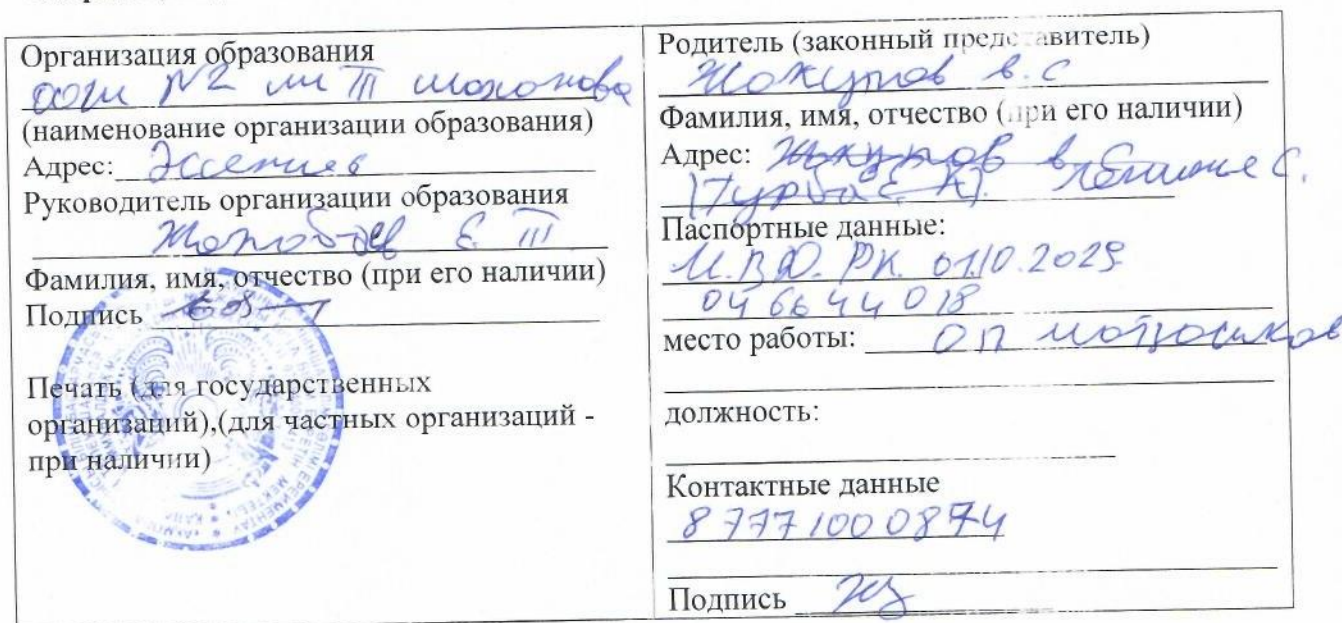 Организация образования
ООШ №2 им Ш
(наименование организации образования)
Адрес:
Руководитель организации образования
Е. Ш
Фамилия, имя, отчество (при его наличии)
Подпись
Печать (для государственных
организаций),(для частных организаций -
при наличии)
Родитель (законный представитель)
Жокупов В. С
Фамилия, имя, отчество (при его наличии)
Адрес: Жокупов В.
Паспортные данные:
М.В.Д. РК. 01.10.2029
046644018
место работы: ОП
должность:
Контактные данные
87771000874
Подпись